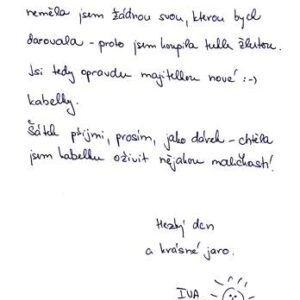 neměla jsem žádnou svou, kterou bych
darovala - proto jsem koupila tuhle žlutou.
Jsi tedy opravdu majitelkou nové! :-)
kabelky.
Šátek přijmi, prosím, jako dárek - chtěla
jsem kabelku oživit nějakou maličkostí!
Hezký den
a krásné jaro.
IVA